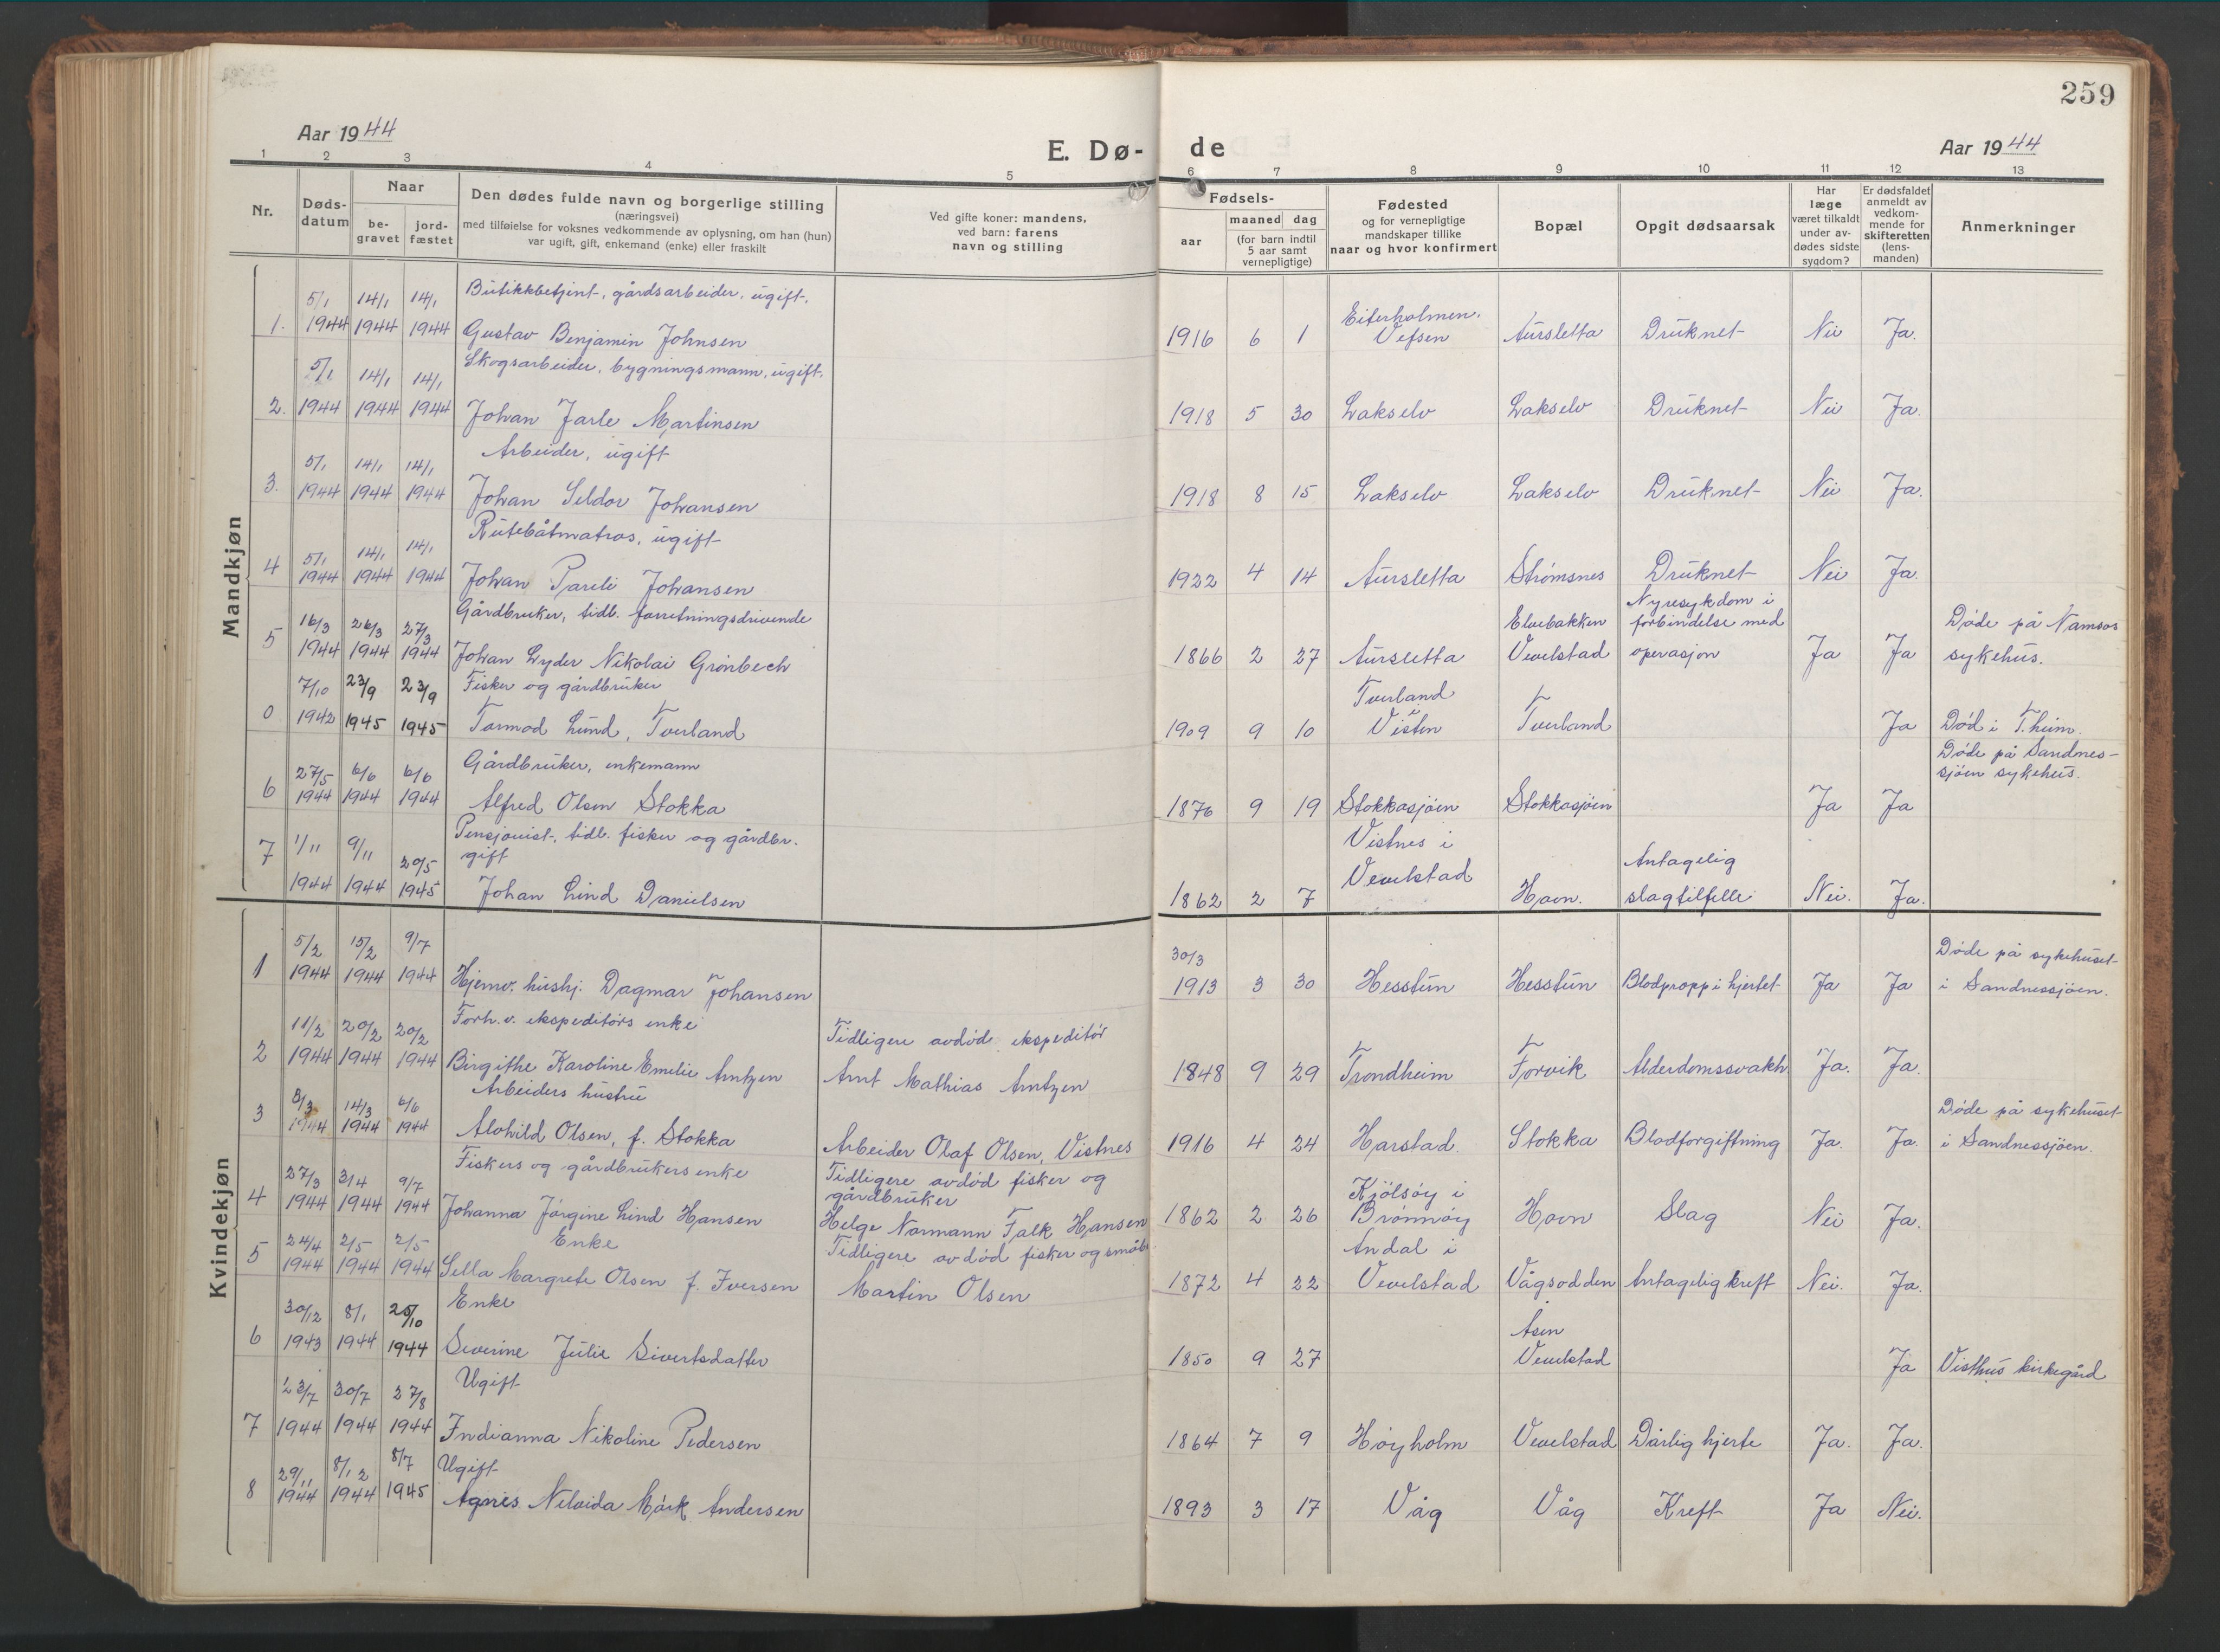 259
Aar 1944
E. Dø-
de
Aar 1944
1 2 3 4 5 6 7 8 9 10 11 12 13
Nr.
Døds-
datum
Naar
be-
gravet
jord-
fæstet
Den dødes fulde navn og borgerlige stilling
(næringsvei)
med tilføielse for voksnes vedkommende av oplysning, om han (hun)
var ugift, gift, enkemand (enke) eller fraskilt
Ved gifte koner: mandens,
ved barn: farens
navn og stilling
Fødsels-
aar
maaned dag
(for barn indtil
5 aar samt
vernepligtige)
Fødested
og for vernepligtige
mandskaper tillike
naar og hvor konfirmert
Bopæl
Opgit dødsaarsak
Har
læge
været tilkaldt
under av-
dødes sidste
sygdom?
Er dødsfaldet
anmeldt av
vedkom-
mende for
skifteretten
(lens-
manden)
Anmerkninger
Mandkjøn
5/1 14/1 14/1 Butikkbetjent, gårdsarbeider, ugift.
Eiterholmen.
1. 1944 1944 1944 Gustav Benjamin Johnsen 1916 6 1 Vefsen Aursletta Druknet Nei Ja.
5/1 14/1 14/1 Skogsarbeider, bygningsmann, ugift.
2. 1944 1944 1944 Johan Jarle Martinsen 1918 5 30 Lakselv Lakselv Druknet Nei Ja.
5/1 14/1 14/1 Arbeider, ugift
3. 1944 1944 1944 Johan Seldor Johansen 1918 8 15 Lakselv Lakselv Druknet Nei Ja.
5/1 14/1 14/1 Rutebåtmatros, ugift
4 1944 1944 1944 Johan Pareli Johansen 1922 4 14 Aursletta Strømsnes Druknet Nei Ja.
16/3 26/3 27/3 Gårdbruker, tidl. forretningsdrivende
Nyresykdom i
Elvebakken forbindelse med Døde på Namsos
5 1944 1944 1944 Johan Lyder Nikolai Grønbech 1866 2 27 Aursletta Vevelstad operasjon Ja Ja sykehus.
7/10 23/9 23/9 Fisker og gårdbruker
Tverland
i
0 1942 1945 1945 Tormod Lund, Tverland 1909 9 10 Visten Tverland Ja Død i T.heim.
27/5 6/6 6/6 Gårdbruker, enkemann
Døde på Sandnes-
sjøen sykehus.
6 1944 1944 1944 Alfred Olsen Stokka 1876 9 19 Stokkasjøen Stokkasjøen Ja Ja
1/11 9/11 20/5 Pensjonist, tidl. fisker og gårdbr.
gift
Vistnes i
Antagelig
7 1944 1944 1945 Johan Lind Danielsen 1862 2 7 Vevelstad Havn. slagtilfelle Nei. Ja.
Kvindekjøn
5/2 15/2 9/7 30/3 Døde på sykehuset
1 1944 1944 1944 Hjemv. hushj. Dagmar Johansen 1913 3 30 Hesstun Hesstun Blodpropp i hjertet Ja Ja i Sandnessjøen.
11/2 20/2 20/2 Forh.v. ekspeditørs enke Tidligere avdød ekspeditør
2 1944 1944 1944 Birgithe Karoline Emelie Arntzen Arnt Mathias Arntzen 1848 9 29 Trondheim Forvik Alderdomssvakh Ja. Ja.
8/3 14/3 6/6 Arbeiders hustru Døde på sykehuset
3 1944 1944 1944 Alvhild Olsen, f. Stokka Arbeider Olaf Olsen, Vistnes 1916 4 24 Harstad. Stokka Blodforgiftning Ja. Ja. i Sandnessjøen.
27/3 3/4 9/7 Fiskers og gårdbrukers enke Tidligere avdød fisker og
gårdbruker Kjølsøy i
4 1944 1944 1944 Johanna Jørgine Lind Hansen Helge Normann Falk Hansen 1862 2 26 Brønnøy Havn Slag Nei Ja.
24/4 2/5 2/5 Enke Tidligere avdød fisker og småbr Andal i
5 1944 1944 1944 Sella Margrete Olsen f. Iversen Martin Olsen 1872 4 22 Vevelstad Vågsodden Antagelig kreft Nei. Ja.
30/12 8/1 25/10 Enke Åsen
6 1943 1944 1944 Severine Julie Sivertsdatter 1850 9 27 Vevelstad Ja Visthus kirkegård
23/7 30/7 27/8 Ugift
7 1944 1944 1944 Indianna Nikoline Pedersen 1864 7 9 Høyholm Vevelstad Dårlig hjerte Ja. Ja.
29/11 8/12 8/7 Ugift
8 1944 1944 1945 Agnes Nelvida Mørk Andersen 1893 3 17 Våg Våg Kreft Ja Nei.